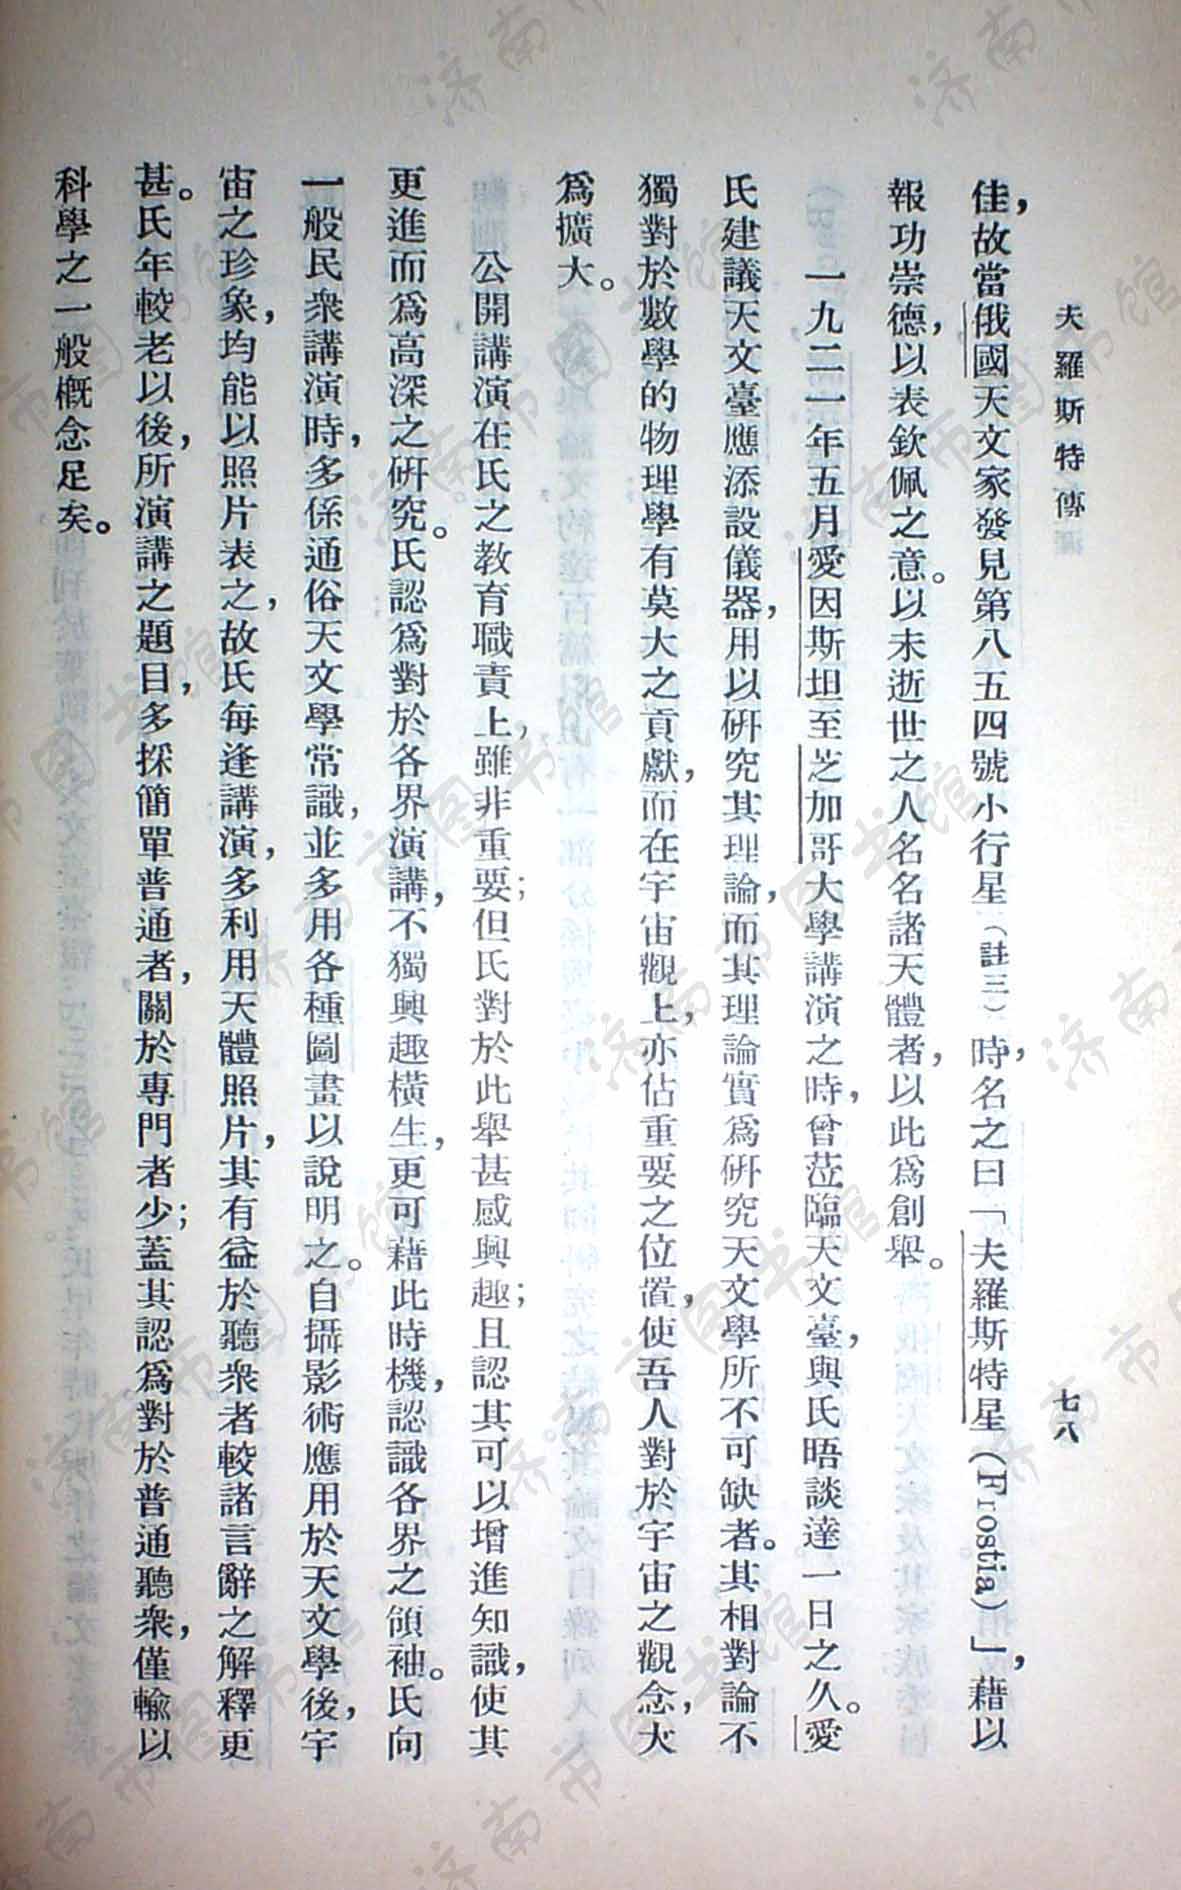 夫羅斯特傳
七八
佳，故當俄國天文家發見第八五四號小行星（註三）時，名之曰「夫羅斯特星（Frostia）」，藉以
報功崇德，以表欽佩之意。以未逝世之人名名諸天體者，以此爲創舉。
一九二一年五月愛因斯坦至芝加哥大學講演之時，曾蒞臨天文臺，與氏晤談達一日之久。愛
氏建議天文臺應添設儀器，用以研究其理論，而其理論實爲研究天文學所不可缺者。其相對論不
獨對於數學的物理學有莫大之貢獻，而在宇宙觀上，亦佔重要之位置，使吾人對於宇宙之觀念，大
爲擴大。
公開講演在氏之教育職責上，雖非重要；但氏對於此舉甚感興趣；且認其可以增進知識，使其
更進而爲高深之研究。氏認爲對於各界演講，不獨興趣橫生，更可藉此時機，認識各界之領袖。氏向
一般民衆講演時，多係通俗天文學常識，並多用各種圖畫以說明之。自攝影術應用於天文學後，宇
宙之珍象，均能以照片表之，故氏每逢講演，多利用天體照片，其有益於聽衆者較諸言辭之解釋更
甚。氏年較老以後，所演講之題目，多採簡單普通者，關於專門者少；蓋其認爲對於普通聽衆，僅輸以
科學之一般概念足矣。
济南市图书馆